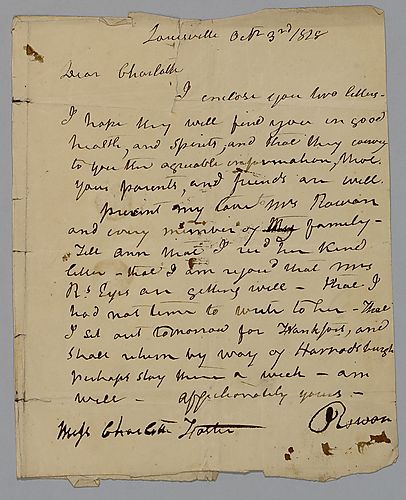 Louisville Octr 3rd 1828
Dear Charlotte
I enclose you two letters -
I hope they will find you in good
health, and spirits, and that they convey
to you the agreeable information, that
your parents and friends are well.
present my love Mrs Rowan
and every member of family -
Tell ann that I recd her kind
letter - that I am rejoicd that Mrs
Rs Eyes are getting well - that I
had not time to write to her - That
I set out tomorrow for Frankfort, and
shall return by way of Harrodsburgh
perhaps stay there a week - am
well - affectionately yours -
Miss Charlotte
Rowan